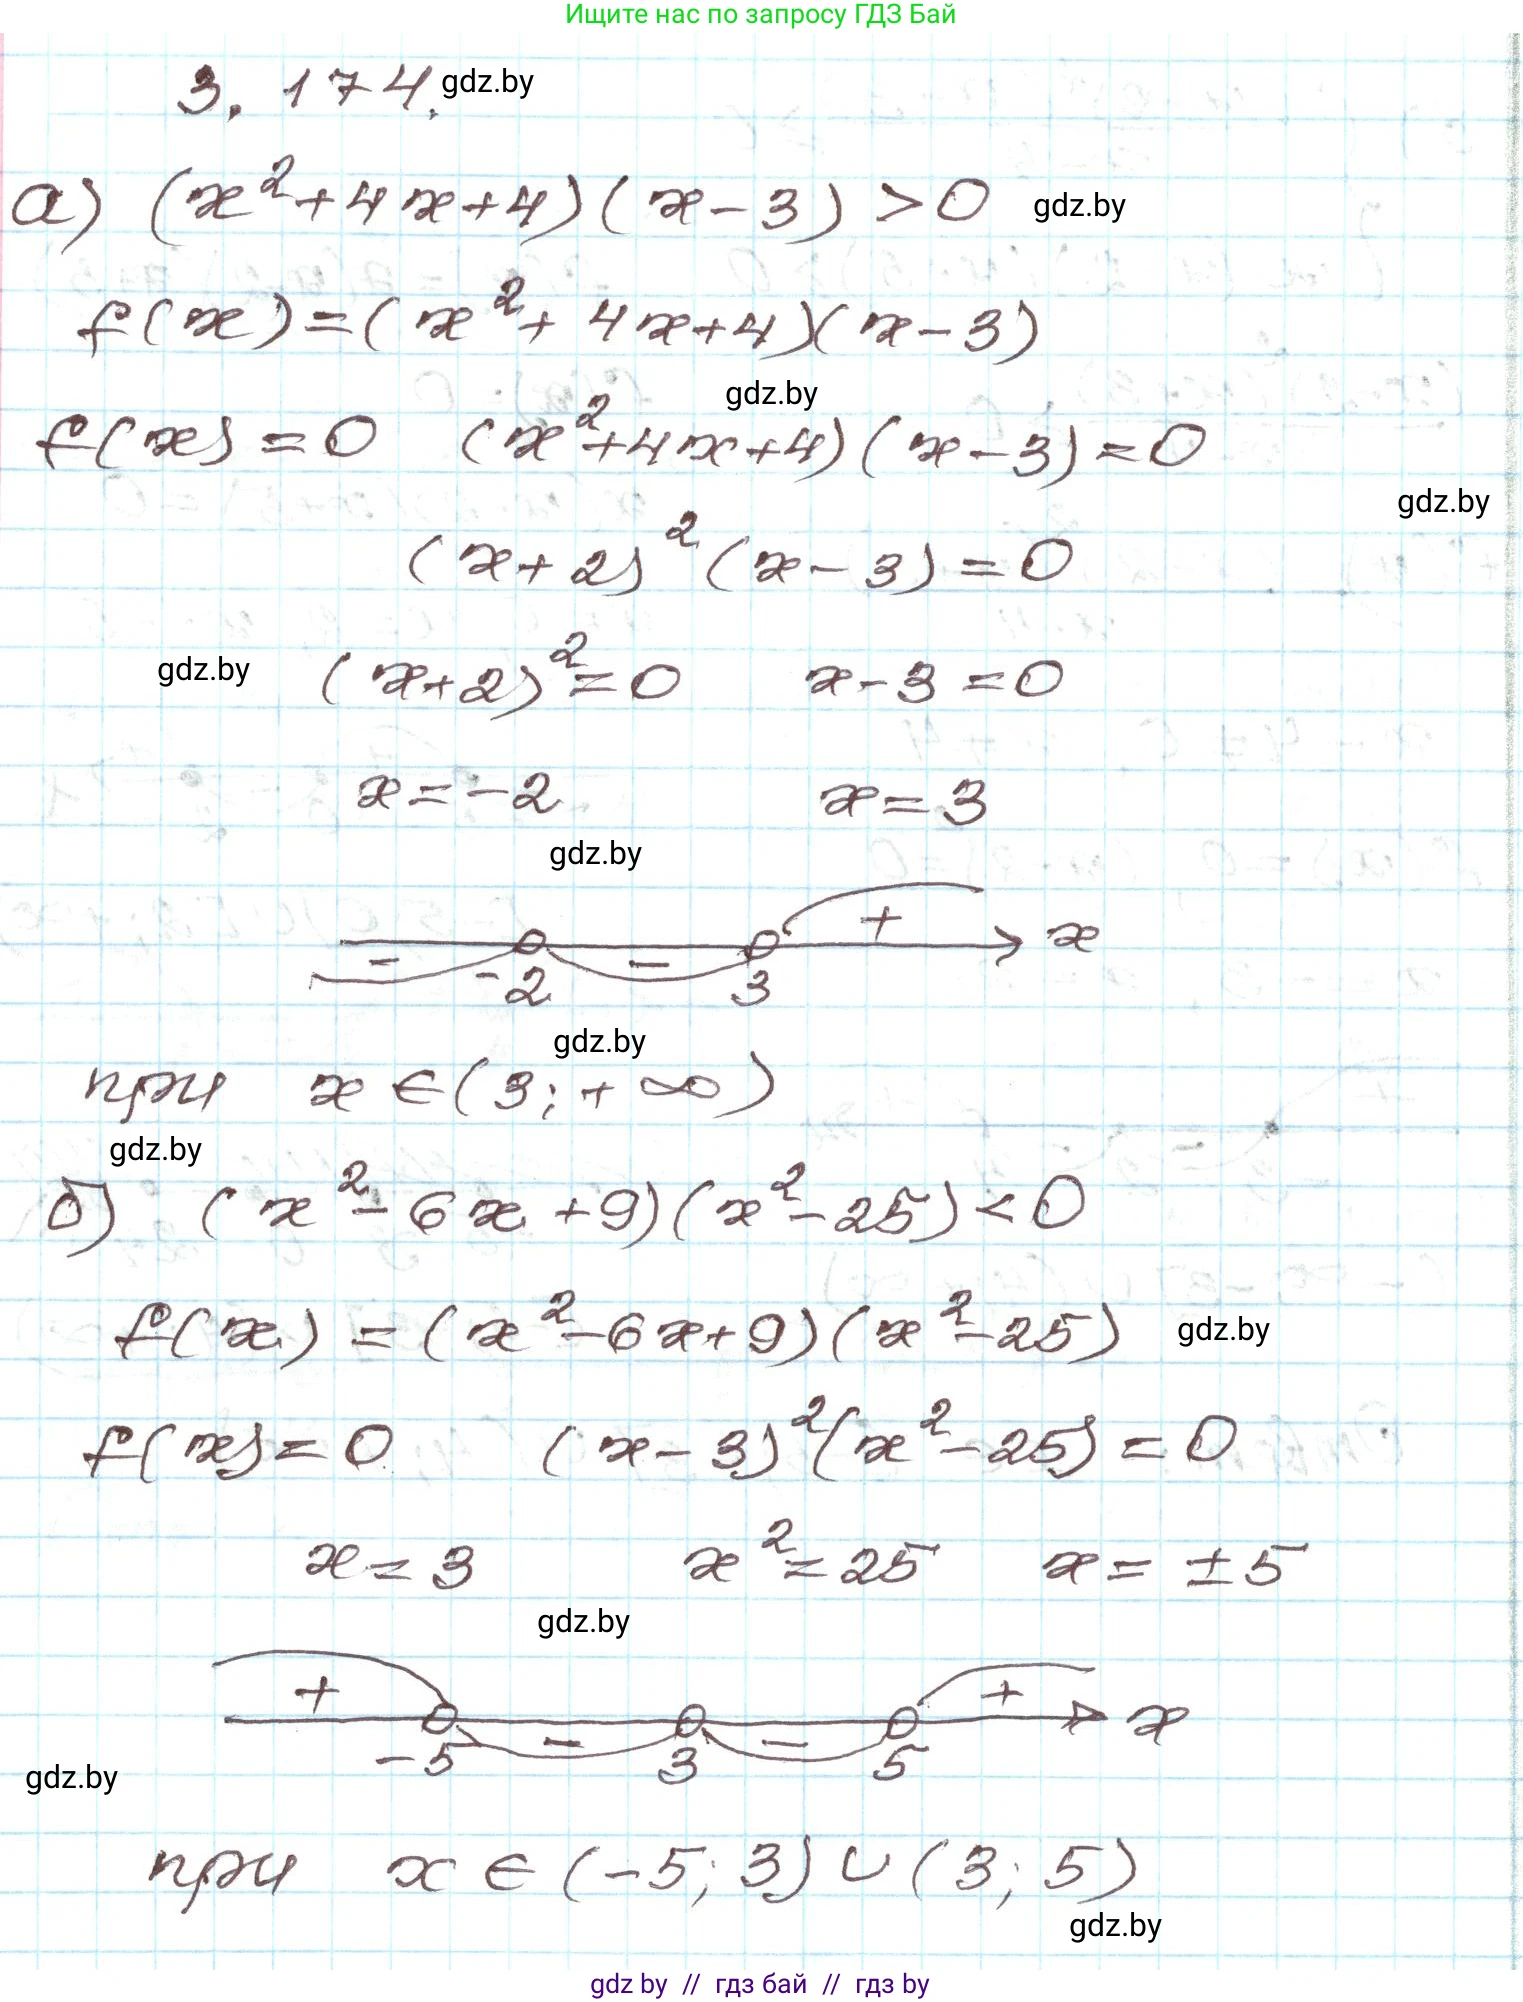 Ищите нас по запросу ГДЗ Бай
3.174. gdz.by
а) (x²+4x+4)(x-3)>0 gdz.by
f(x)=(x²+4x+4)(x-3)
gdz.by
f(x)=0 (x²+4x+4)(x-3)=0
gdz.by
(x+2)²(x-3)=0
gdz.by (x+2)²=0 x-3=0
x=-2 x=3
gdz.by
- - + x
-2 3
gdz.by
при x∈(3;+∞)
gdz.by
б) (x²-6x+9)(x²-25)<0
f(x)=(x²-6x+9)(x²-25) gdz.by
f(x)=0 (x-3)²(x²-25)=0
x=3 x²=25 x=±5
gdz.by
+ - - + x
-5 3 5
gdz.by
при x∈(-5;3)∪(3;5)
gdz.by
gdz by // гдз бай // гдз by